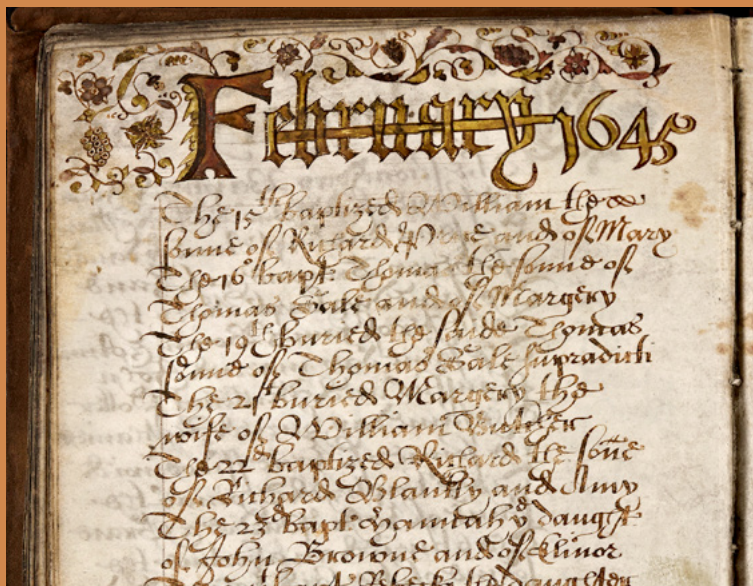 February 1645
The 15th baptized William the
sonne of Richard and of Mary
The 16 bapt Thomas the sonne of
Thomas Bale and of Margery
The 19th buried the saide Thomas
sonne of Thomas Bale supradicti
The 21 buried Margery the
wife of William Butcher
The 22d baptized Richard the soñe
of Richard and Amy
The 23d bapt Hannah ye daught
of John Browne and of Elinor